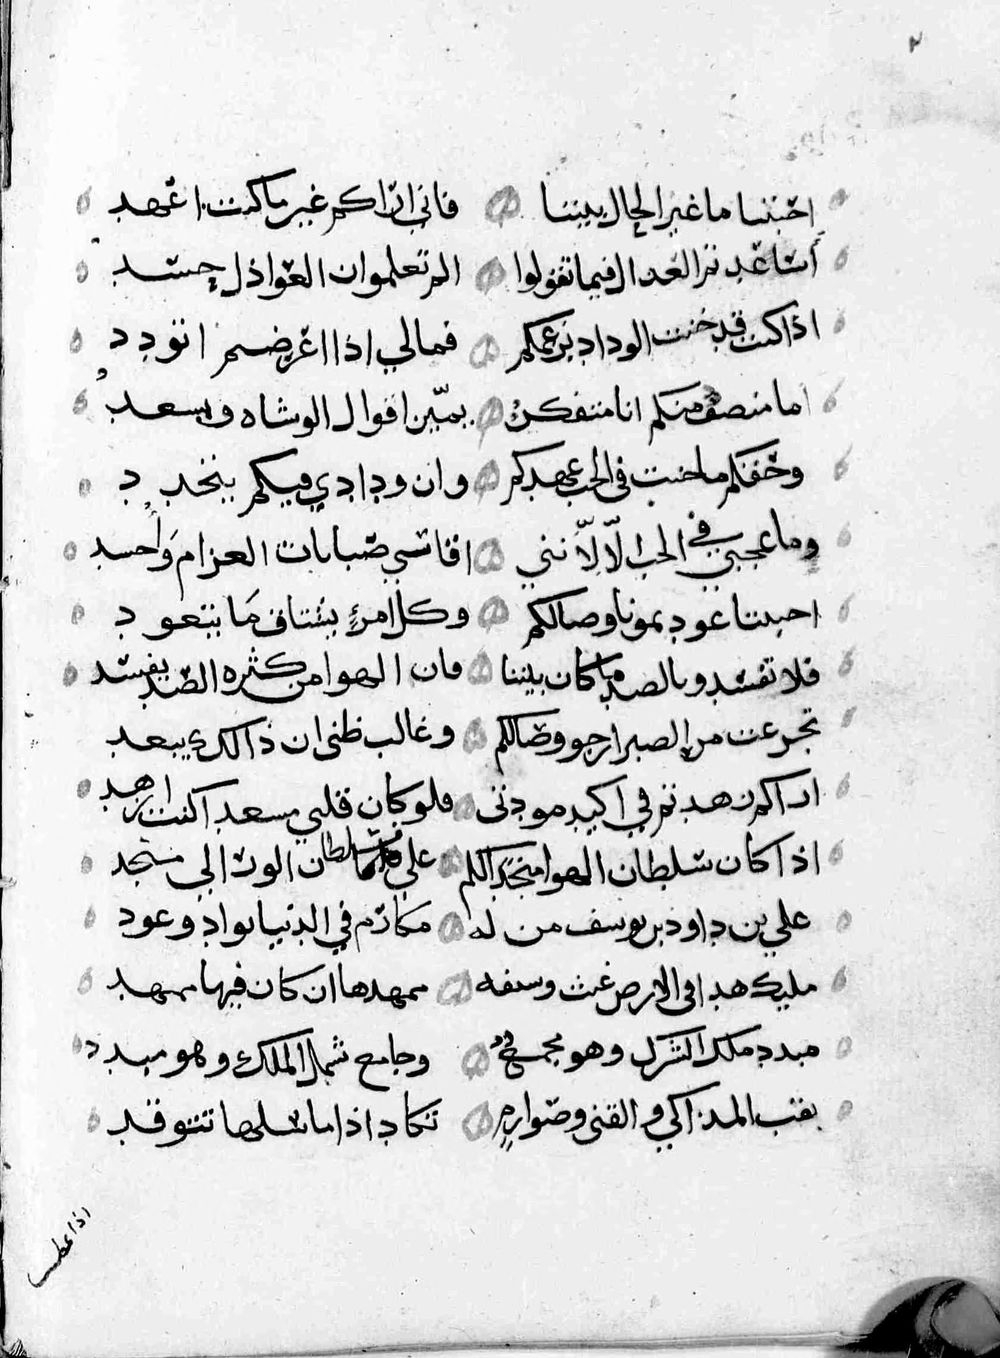 ٢
احبتنا ما غير الحال بيننا فاني اراكم غير ما كنت اعهد
أساعدتم العدال فيما تقولوا الم تعلموا ان العواذل حسد
اذا كنت قد خنت الوداد بزعمكم فمالي اذا اعرضتم اتودد
اما منصف منكم انا متفكر يميّز اقوال الوشاه ويسعد
وحقكم ما خنت في الحب عهدكم وان ودادي فيكم يتجدد
وما عجبي في الحب الّا لِأنني اقاسي صبابات الغرام وَأُحسد
احبتنا عودتمونا وصالكم وكل امرئٍ يشتاق مَا يتعود
فلا تفسدو بالصد ما كان بيننا فان الهوا من كثره الصّد يفسد
تجرعت من الصبر ارجو وصالكم وغالب ظني ان ذالك يبعد
اراكم زهدتم في اكيد مودتي فلو كان قلبي مسعدا كنت ازهد
اذا كان سلطان الهوا متحكم علي سلطان الورا لي منجد
علي بن داود بن يوسف من له مكارم في الدنيا بواد وعود
مليك هدا في الارض غيث وسفه ممهدها ان كان فيها ممهد
مبدد ملك الشرك وهو مجمع وجامع شمل الملك وهو مبدد
بقب المذاكي والقنى وصوارم تكاد اذا ما سلها تتوقد
اذا عطس